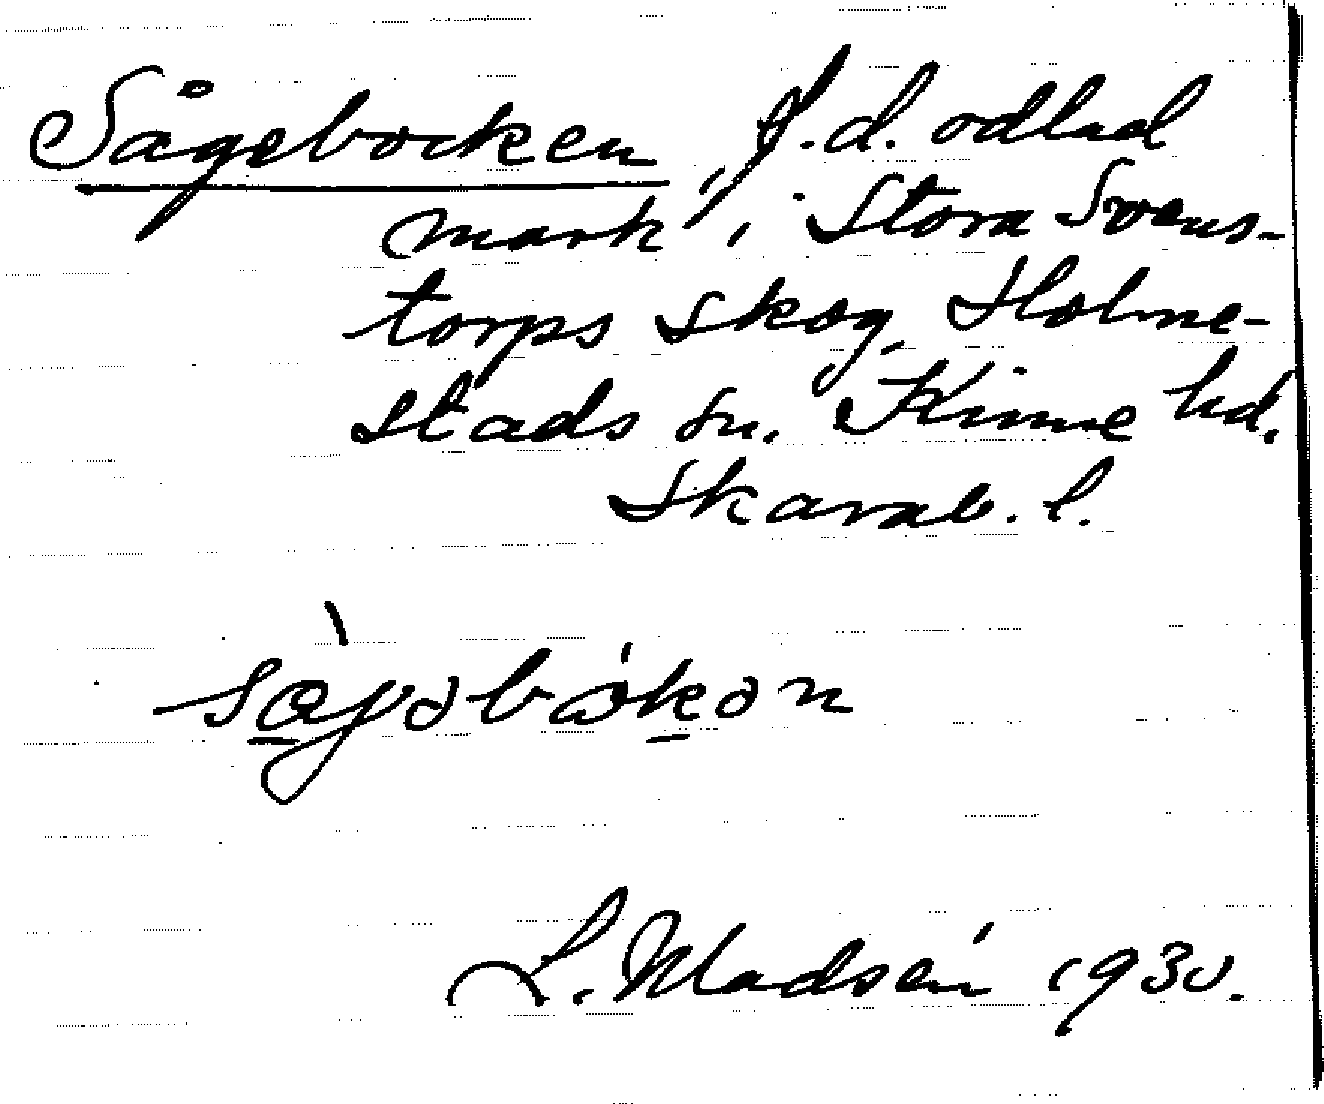 Sågebocken, f.d. odlad
mark, i Stora Svens-
torps skog, Holme-
stads sn. Kinne hd.
Skarab. l.
L. Madsén 1930.